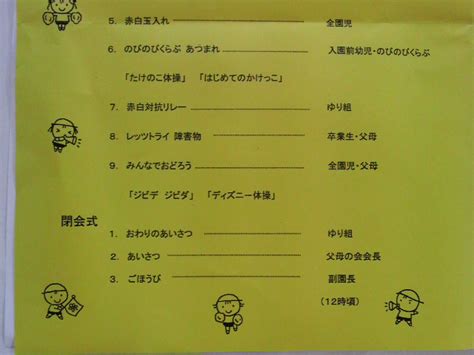 5. 赤白玉入れ 全園児
6. のびのびくらぶ あつまれ 入園前幼児・のびのびくらぶ
「たけのこ体操」 「はじめてのかけっこ」
7. 赤白対抗リレー ゆり組
8. レッツトライ 障害物 卒業生・父母
9. みんなでおどろう 全園児・父母
「ジビデ ジビダ」 「ディズニー体操」
閉会式
1. おわりのあいさつ ゆり組
2. あいさつ 父母の会会長
3. ごほうび 副園長
(12時頃)